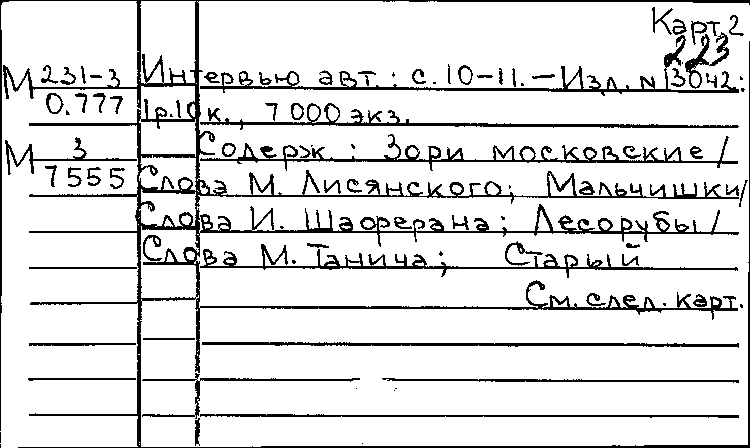 Карт. 2
223
М 231-3 Интервью авт.: с. 10-11. — Изд. N 13042:
0.777 1р.10к., 7 000 экз.
М 3 Содерж.: Зори московские /
7555 Слова М. Лисянского; Мальчишки /
Слова И. Шаферана; Лесорубы /
Слова М. Танича; Старый
См. след. карт.